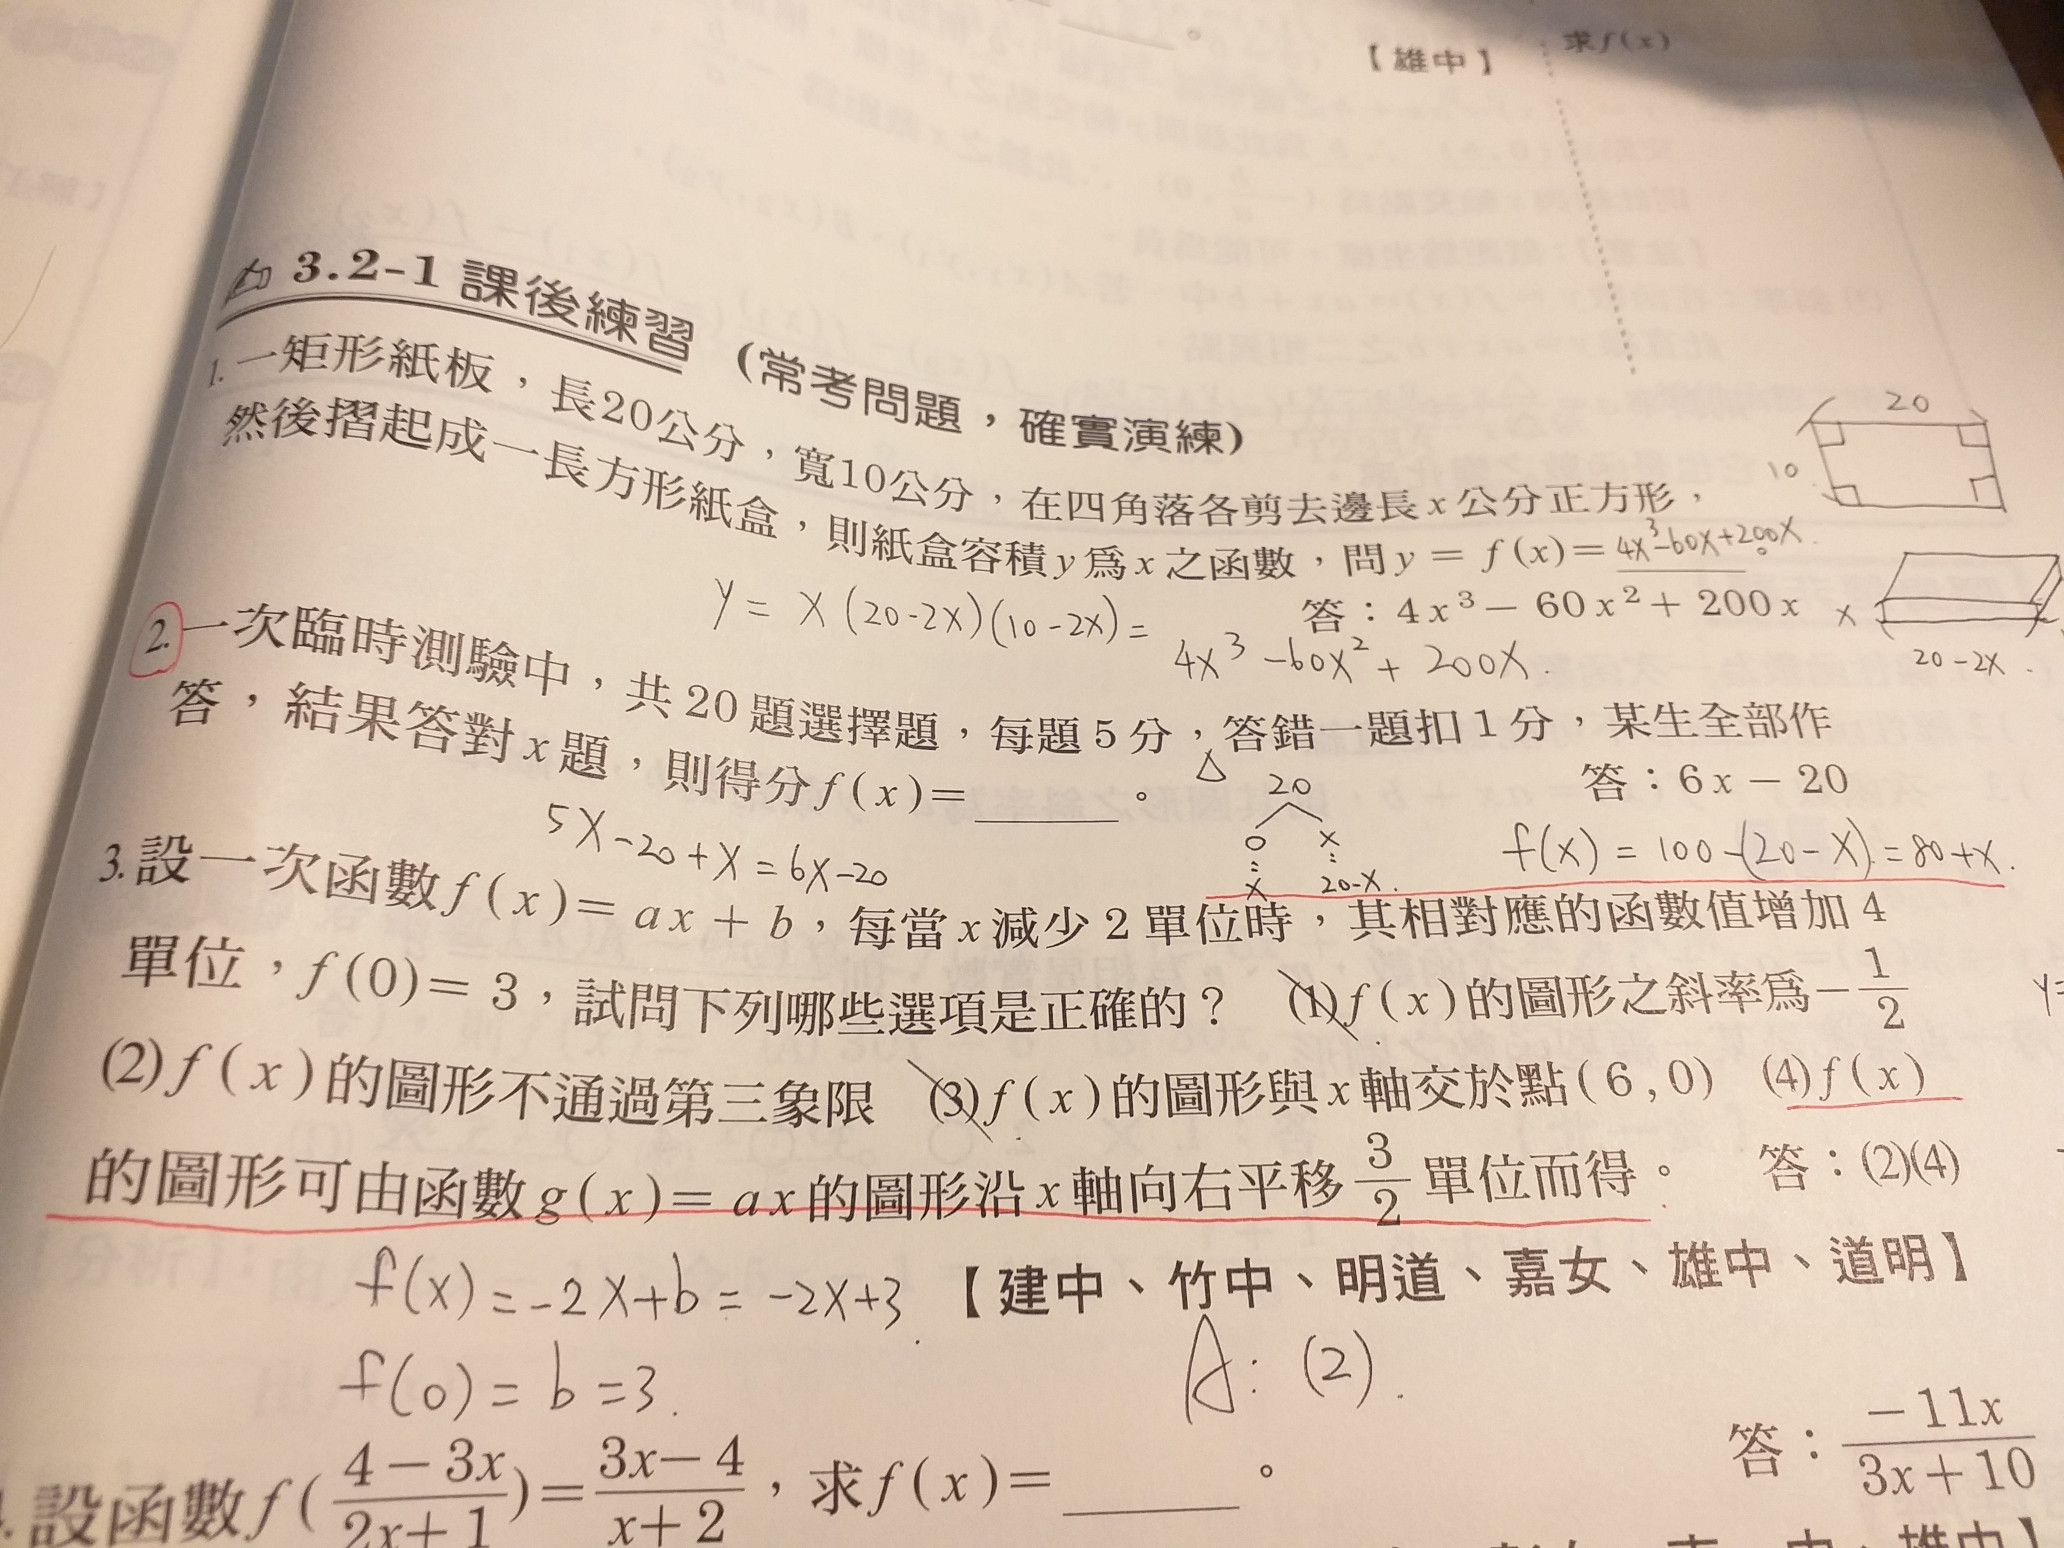 【雄中】
求f(x)
3.2-1 課後練習 (常考問題，確實演練)
1.一矩形紙板，長20公分，寬10公分，在四角落各剪去邊長x公分正方形，
然後摺起成一長方形紙盒，則紙盒容積y為x之函數，問y = f(x)= 4x³-60x+200x.
20
10
答：4x³－60x²＋200x
y = x(20-2x)(10-2x)=
4x³-60x²+200x.
x
20-2x.
2.一次臨時測驗中，共20題選擇題，每題5分，答錯一題扣1分，某生全部作
答，結果答對x題，則得分f(x)=______。
答：6x－20
5x-20+x=6x-20
20
○ x
x 20-x.
f(x) = 100-(20-x) = 80+x.
3.設一次函數f(x)= ax + b，每當x減少2單位時，其相對應的函數值增加4
單位，f(0)= 3，試問下列哪些選項是正確的？ (1)f(x)的圖形之斜率為－1/2
(2)f(x)的圖形不通過第三象限 (3)f(x)的圖形與x軸交於點(6,0) (4)f(x)
的圖形可由函數g(x)= ax的圖形沿x軸向右平移3/2單位而得。 答：(2)(4)
f(x) = -2x+b = -2x+3.
【建中、竹中、明道、嘉女、雄中、道明】
f(0) = b = 3.
A: (2).
設函數f((4－3x)/(2x+1))=(3x－4)/(x+2)，求f(x)=______。
答：(－11x)/(3x+10)